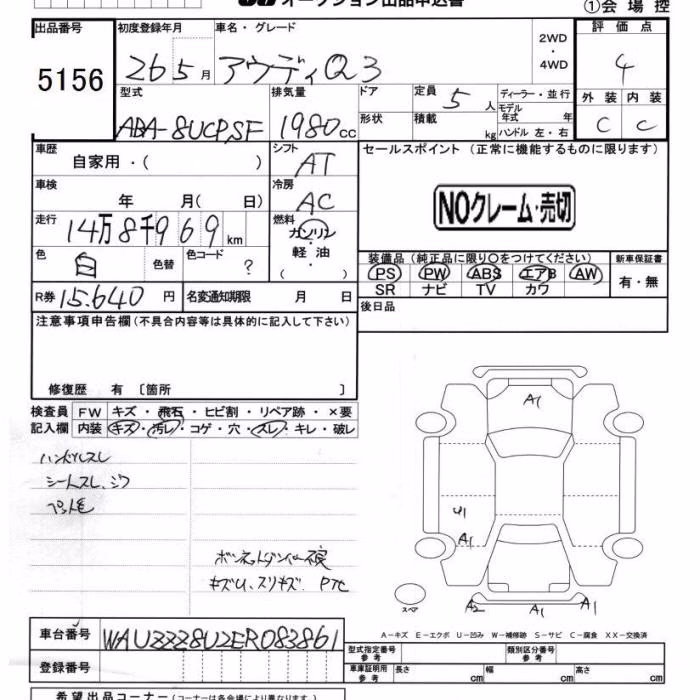 オークション出品申込書
①会場控
出品番号
5156
初度登録年月
26 5月
車名・グレード
アウディQ3
2WD
・
4WD
評価点
4
外装 内装
C C
型式
ABA-8UCPSF
排気量
1980cc
ドア
形状
定員 5人
積載 kg
ディーラー・並行
モデル年式 年
ハンドル 左・右
車歴
自家用・( )
シフト
AT
車検
年 月( 日)
冷房
AC
走行
14万8千969km
燃料
ガソリン
軽油
( )
色
白
色替
色コード
?
R券 15.640円
名変通知期限 月 日
セールスポイント(正常に機能するものに限ります)
NOクレーム・売切
装備品(純正品に限り〇をつけてください)
PS PW ABS エアB AW
SR ナビ TV カワ
新車保証書
有・無
後日品
注意事項申告欄(不具合内容等は具体的に記入して下さい)
修復歴 有〔箇所 〕
検査員記入欄
FW キズ・飛石・ヒビ割・リペア跡・×要
内装 キズ・汚レ・コゲ・穴・スレ・キレ・破レ
ハンドルスレ
シートスレ、シワ
ペット毛
ボンネットダンパー不良
キズU、スリキズ PTC
A1
U1
A1
A2
A1
A1
スペア
A-キズ E-エクボ U-凹み W-補修跡 S-サビ C-腐食 XX-交換済
車台番号
WAUZZZ8U2ER083861
登録番号
型式指定番号
参考
類別区分番号
参考
車庫証明用
参考
長さ cm 幅 cm 高さ cm
希望出品コーナー(コーナーは各会場により異なります)